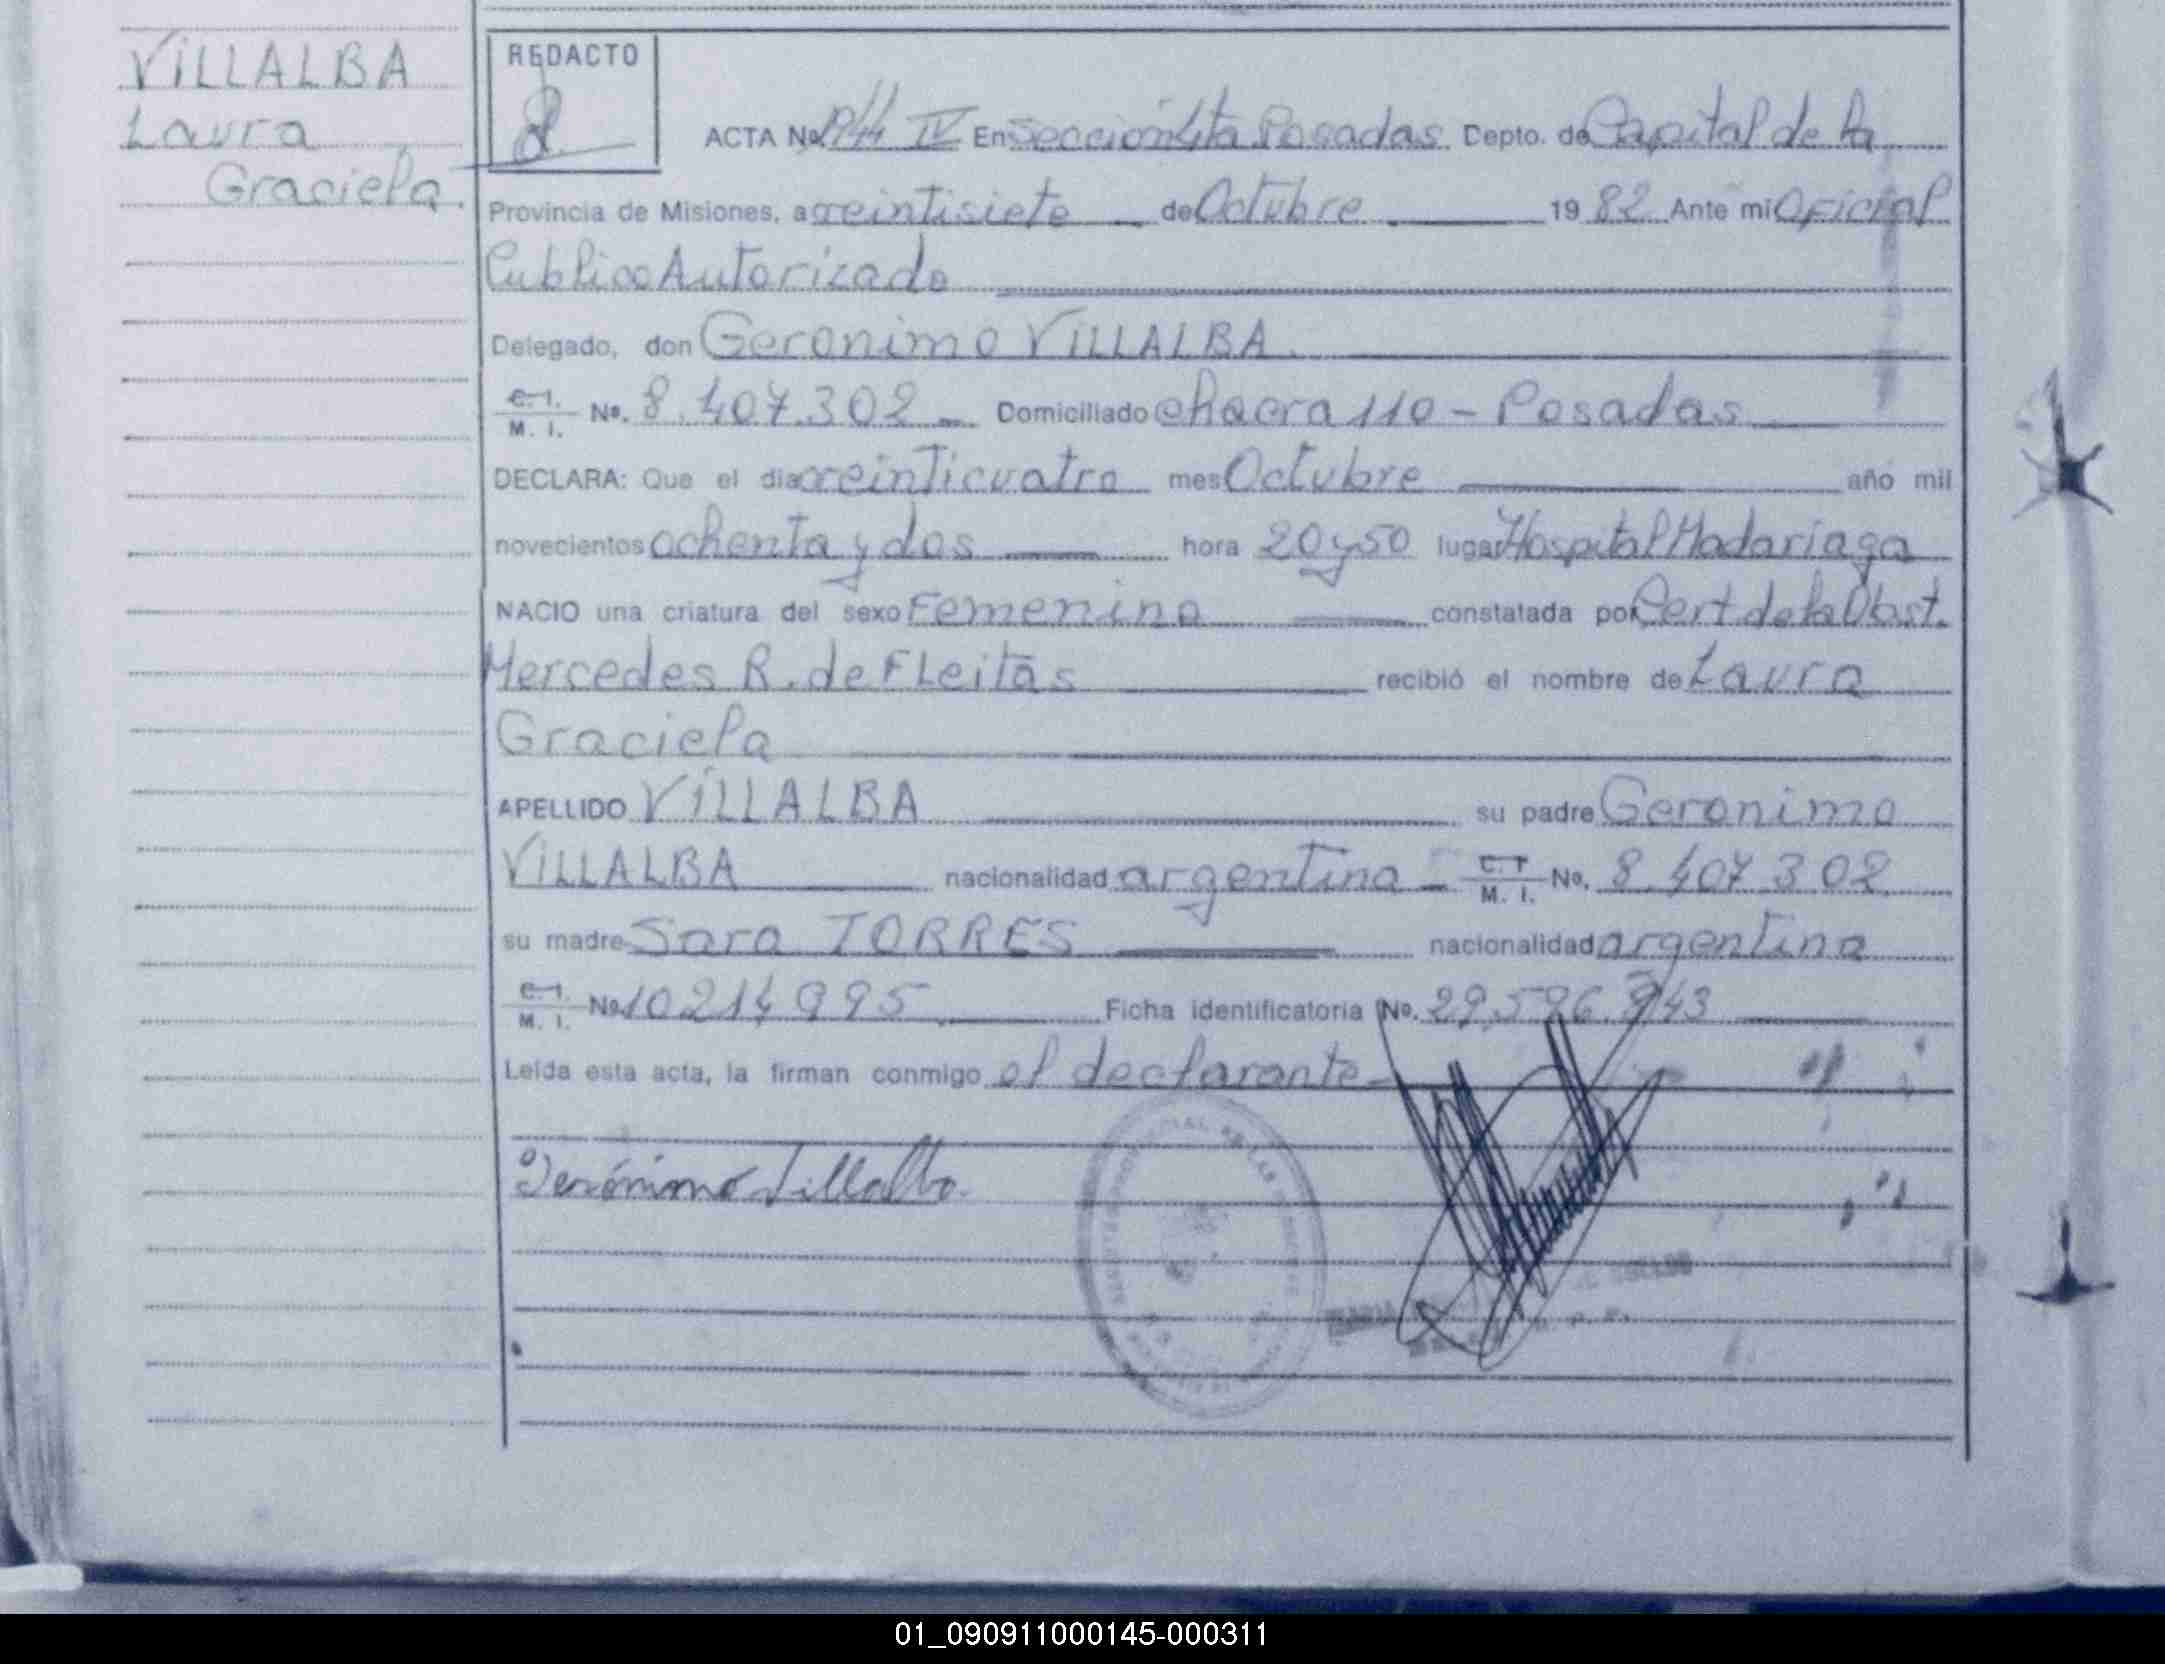 VILLALBA
Laura
Graciela.
REDACTO
ACTA No. IV En Sección 4ta Posadas Depto. de Capital de la
Provincia de Misiones, a veintisiete de Octubre 19 82 Ante mi Oficial
Publico Autorizado
Delegado, don Geronimo VILLALBA.
C. I. M. I. No. 8.407.302 Domiciliado chacra 110 - Posadas
DECLARA: Que el dia veinticuatro mes Octubre año mil
novecientos ochenta y dos hora 20 y 50 lugar Hospital Madariaga
NACIO una criatura del sexo Femenino constatada por Cert. de la Obst.
Mercedes R. de FLeitas recibió el nombre de Laura
Graciela
APELLIDO VILLALBA su padre Geronimo
VILLALBA nacionalidad argentina C. I. M. I. No. 8.407.302
su madre Sara TORRES nacionalidad argentina
C. I. M. I. No. 10214995 Ficha identificatoria No. 29.596.943
Leída esta acta, la firman conmigo el declarante
Jerónimo Villalba.
01_090911000145-000311